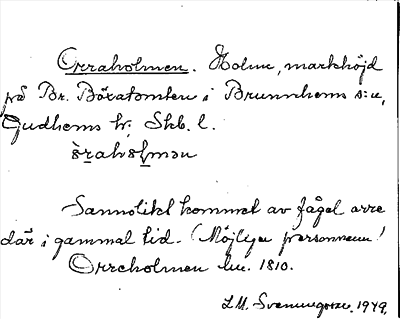 Orraholmen. Holme, markhöjd
på Br. Böxatomten i Brunnhems s:n,
Gudhems hr, Skb. l.
òraholmən
Sannolikt kommet av fågel orre
där i gammal tid. (Möjligen personnamn!
Orreholmen 1810.
L.M. Svenungsson. 1949.